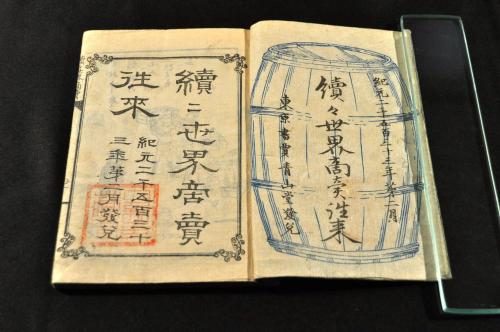 紀元二千五百三十三年第二月
續々世界商賣往来
東京書賈青山堂發兌
續々世界商賣
往來
紀元二千五百三十
三年第二月發兌